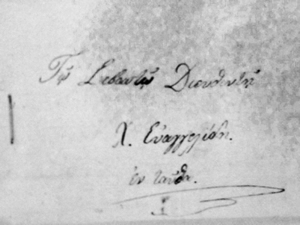 Τῷ Σεβαστῷ Διευθυντῇ
Χ. Εὐαγγελίδῃ.
ἐν ταῦθα.